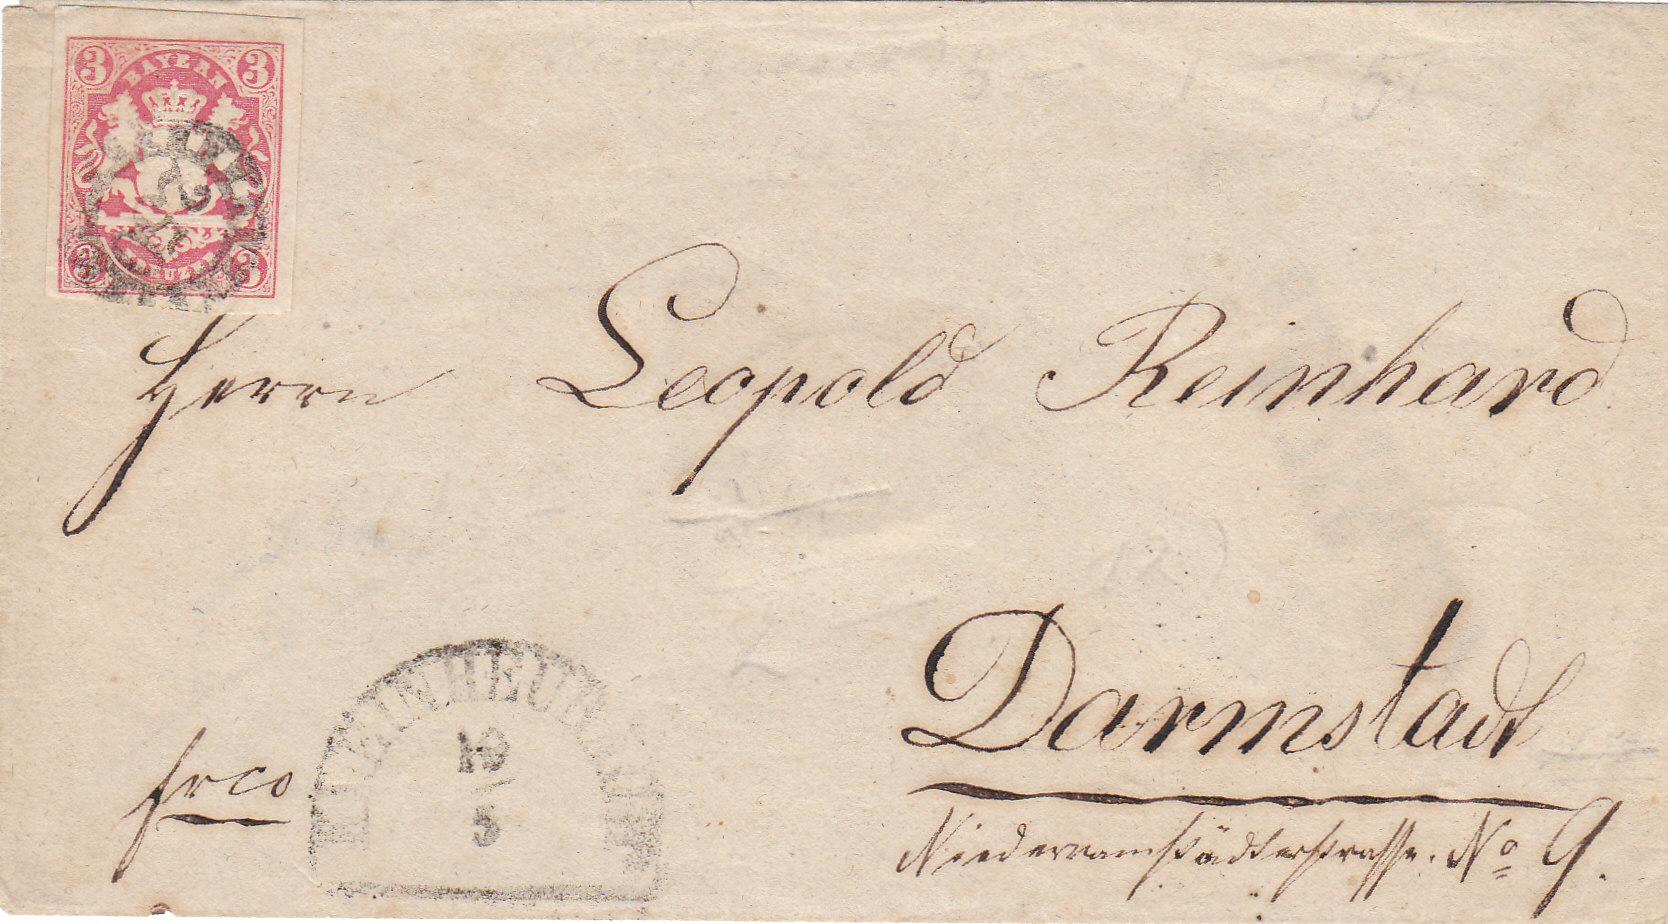 3 3
BAYERN
3 3
Herrn Leopold Reinhard
Darmstadt
frco
KLEINHEUBACH
19
5
Niederramstädterstrasse. No 9.